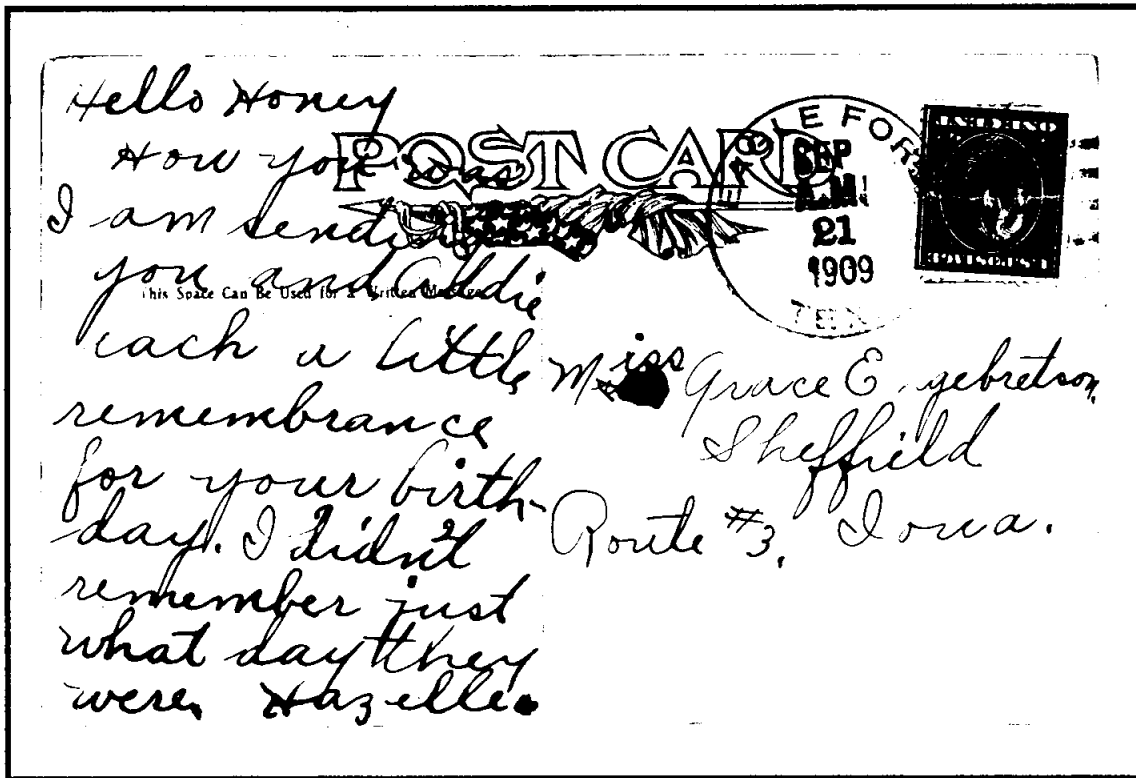 Hello Honey
How you was
I am sending
you and Addie
each a little
remembrance
for your birth-
day. I didn't
remember just
what day they
were. Hazelle.
POST CARD
This Space Can Be Used for a Written Message
SEP
A.M.
21
1909
Miss Grace E gebretson,
Sheffield
Route #3, Iowa.